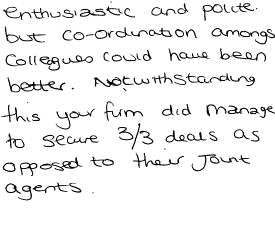 enthusiastic and polite.
but co-ordination amongs
Collegues could have been
better. Notwithstanding
this your firm did manage
to secure 3/3 deals as
opposed to their Joint
agents.